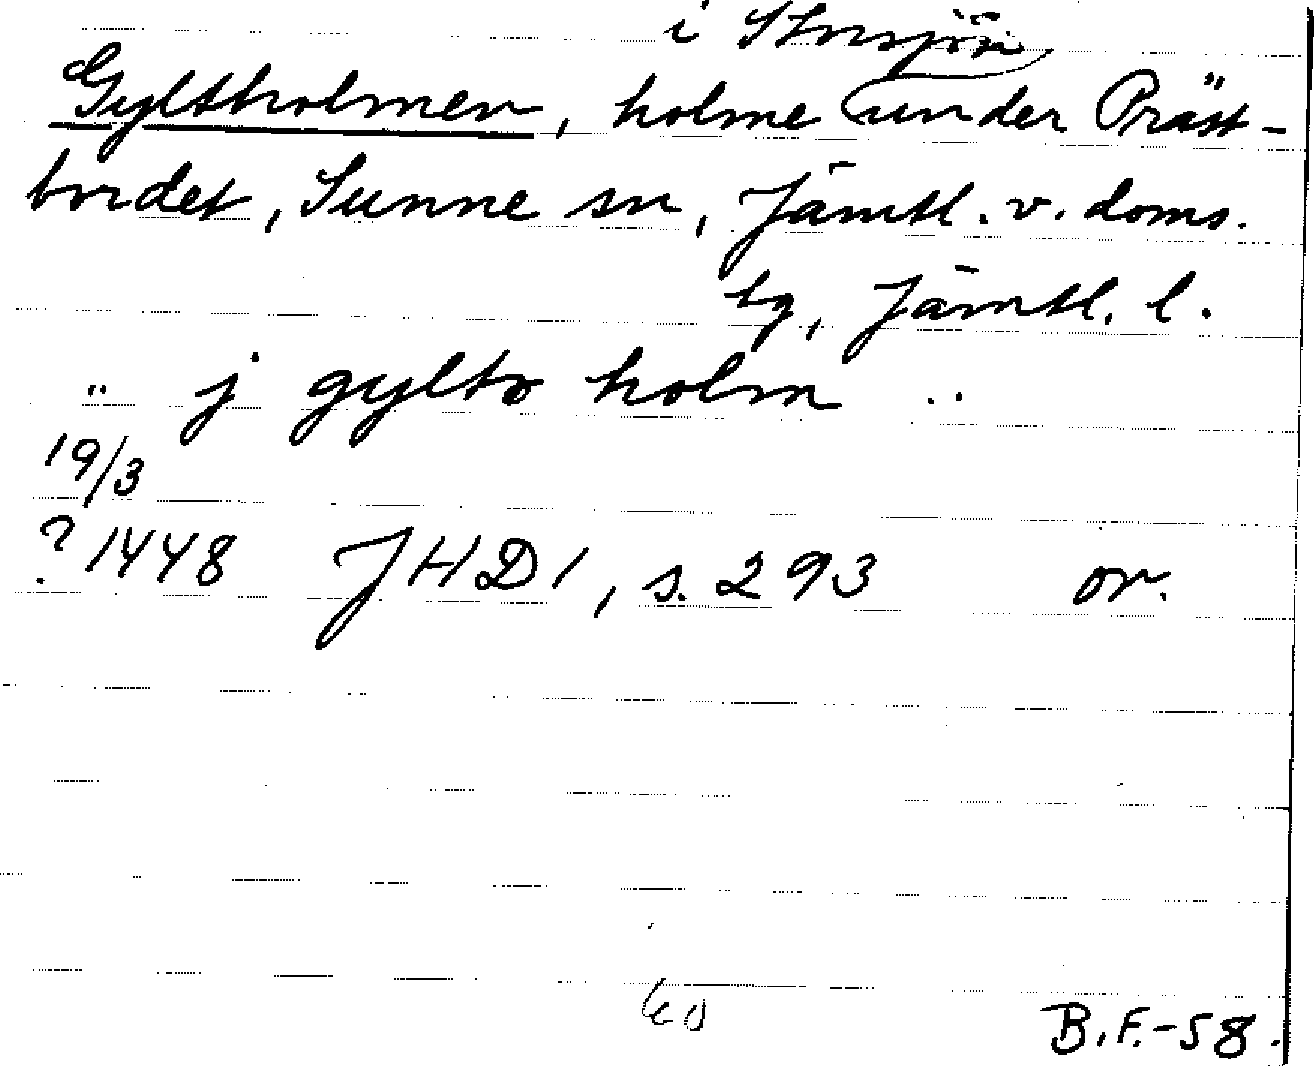 i Storsjön
Gyltholmen, holme under Präst-
bordet, Sunne sn, Jämtl. v. doms.
tg, Jämtl. l.
" j gylto holm ..
19/3
? 1448 JHD 1, s. 293 or.
B.F.-58.